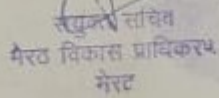 संयुक्त सचिव
मेरठ विकास प्राधिकरण
मेरठ